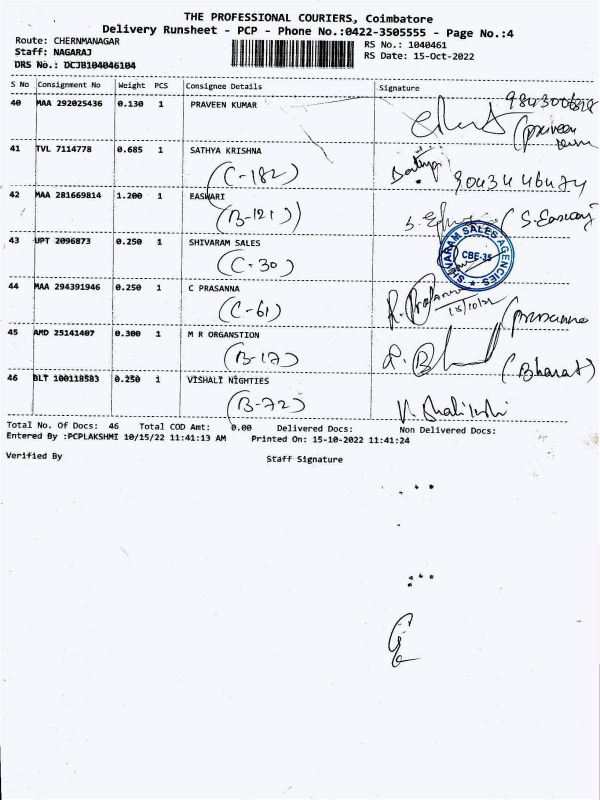 THE PROFESSIONAL COURIERS, Coimbatore
Delivery Runsheet - PCP - Phone No.:0422-3505555 - Page No.:4
Route: CHERNMANAGAR
RS No.: 1040461
Staff: NAGARAJ
RS Date: 15-Oct-2022
DRS No.: DCJB104046104
S No Consignment No Weight PCS Consignee Details Signature
40 MAA 292025436 0.130 1 PRAVEEN KUMAR
(praveen
41 TVL 7114778 0.685 1 SATHYA KRISHNA
(C-182) Sathya 9043446474
42 MAA 281669814 1.200 1 EASWARI
(B-121) (S. Easwari
43 UPT 2096873 0.250 1 SHIVARAM SALES
(C-30)
SHIVARAM SALES AGENCIES
CBE-35
44 MAA 294391946 0.250 1 C PRASANNA
(C-61) R. Prasanna
15/10/22
(prasanna
45 AMD 25141407 0.300 1 M R ORGANSTION
(B-17) (Bharat)
46 BLT 100118583 0.250 1 VISHALI NIGHTIES
(B-72)
Total No. Of Docs: 46 Total COD Amt: 0.00 Delivered Docs: Non Delivered Docs:
Entered By :PCPLAKSHMI 10/15/22 11:41:13 AM Printed On: 15-10-2022 11:41:24
Verified By Staff Signature